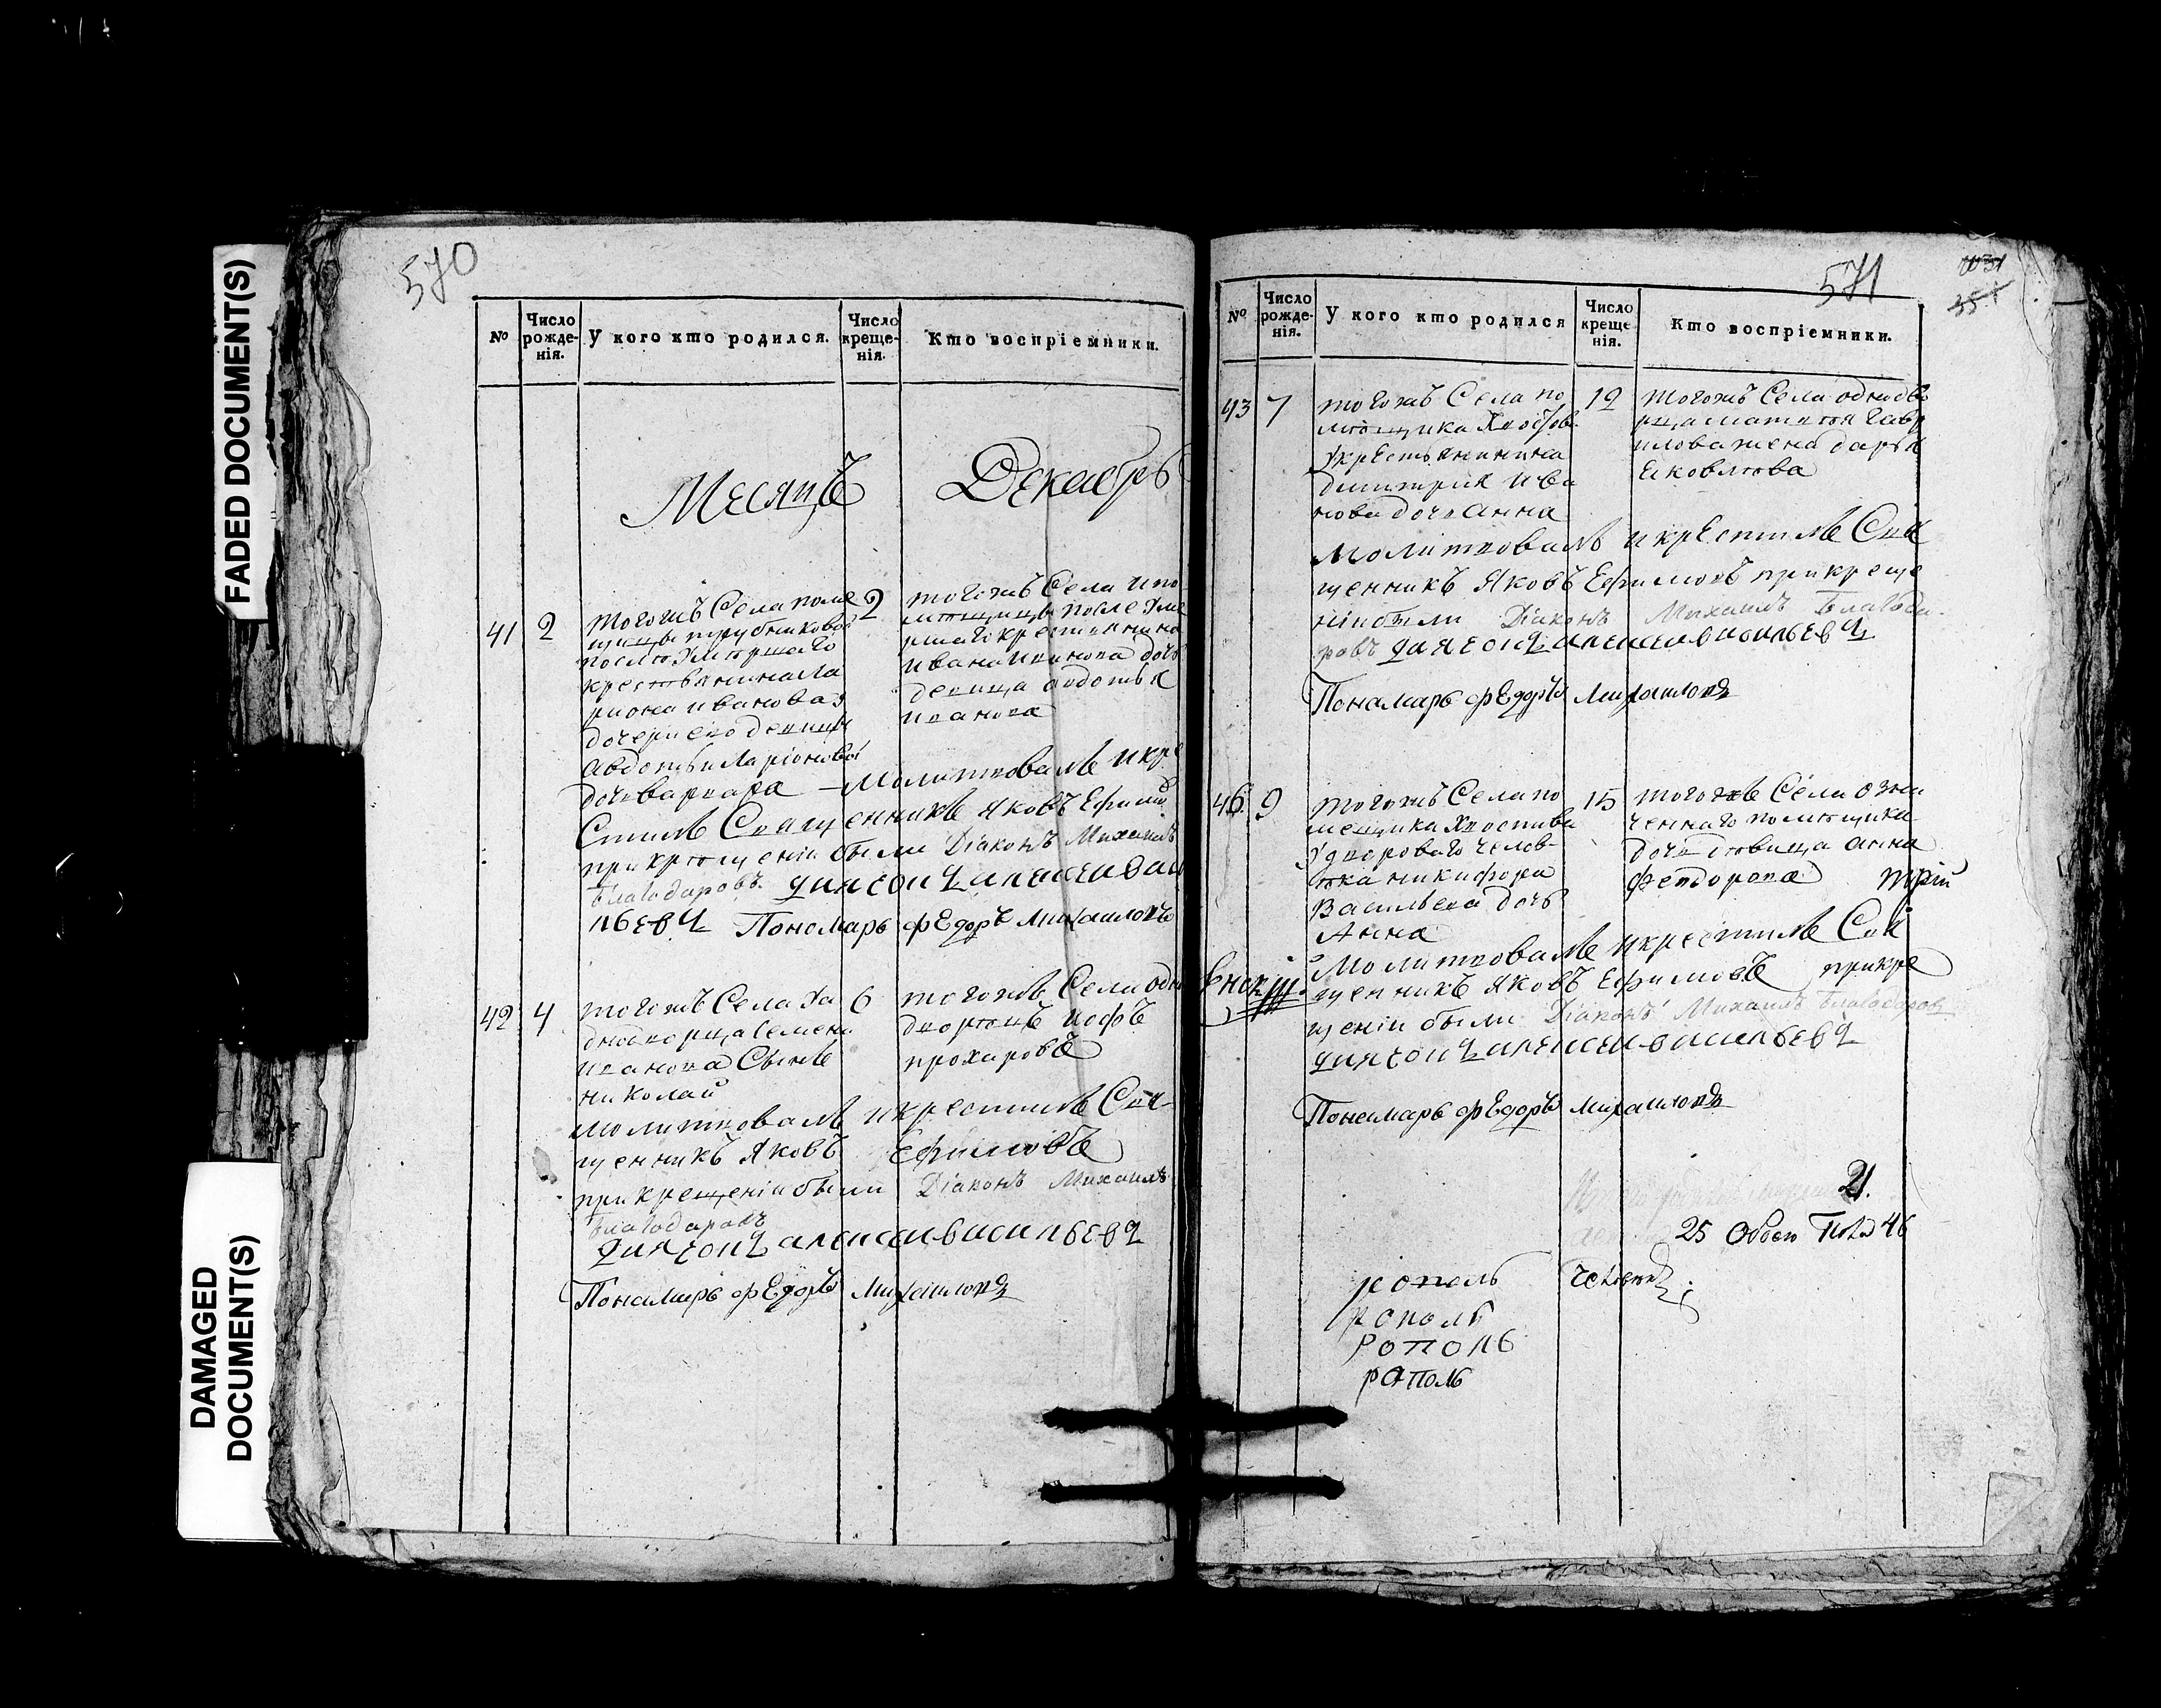 FADED DOCUMENT(S)
DAMAGED DOCUMENT(S)
570
№
Число рожде-нія.
У кого кто родился.
Число креще-нія.
Кто воспріемники.
Месяцъ Декабрь
41 2
тогожъ Села поме
щицы трубниковой
послѣ умѣршаго
крестьянина ла
риона иванова у
дочери его девицы
Авдотьи Ларіоновой
дочь варвара
2
тогожъ Села ипо
мѣщицы после уме
ршаго крестьянина
ивана иванова дочь
девица авдотья
иванова
Молитвовалъ икре
стилъ Священникъ Яковъ Ефимо
прикрѣщеніи были Діаконъ Михаилъ
Благодаровъ. дьячокъ алексеи васи
льевъ Пономарь фЕдоръ михаиловъ
42 4
тогожъ Села
днодворца Семена
иванова Сынъ
николаи
6
тогожъ Села одно
дворѣцъ иофъ
прохаровъ
молитвовалъ икрестилъ Свя
щенникъ Яковъ Ефимовъ
прикрещеніи были Діаконъ Михаилъ
Благодаровъ
дьячокъ алексеи васильевъ
Пономарь фЕдоръ Михаиловъ
571
№
Число рожде-нія.
У кого кто родился
Число креще-нія.
Кто воспріемники.
43 7
тогожъ Села по
мѣщика
укрестьянинина
димитрия ива
нова дочь анна
12
тогожъ Села однодво
рца матвѣя гавр
илова жена дарья
Яковлѣва
Молитвовалъ икрЕстилъ Свя
щенникъ Яковъ Ефимовъ прикреще
ніи были Діаконъ Михаилъ Благода-
ровъ дьячокъ алексеи васильевъ
Пономарь фЕдоръ Михаиловъ
46 9
тогожъ Села по
мещика Хвостова
удвороваго челов-
ѣка никифора
Васильева дочь
Анна
15
тогожъ Села озна
ченнаго помѣщика
дочь дѣвица анна
Феѣдорова
Молитвовалъ икрестилъ Свя
щенникъ Яковъ Ефимовъ прикре
щеніи были Діаконъ Михаилъ Благодаровъ
дьячокъ алексеи васильевъ
Пономарь фЕдоръ михаиловъ
21.
25 Обоего Пола 46